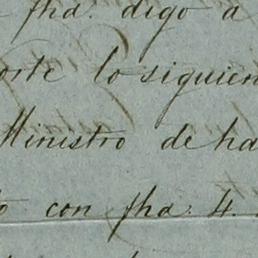 fha. digo a
orte lo siguien
Ministro de ha
o con fha. 4.